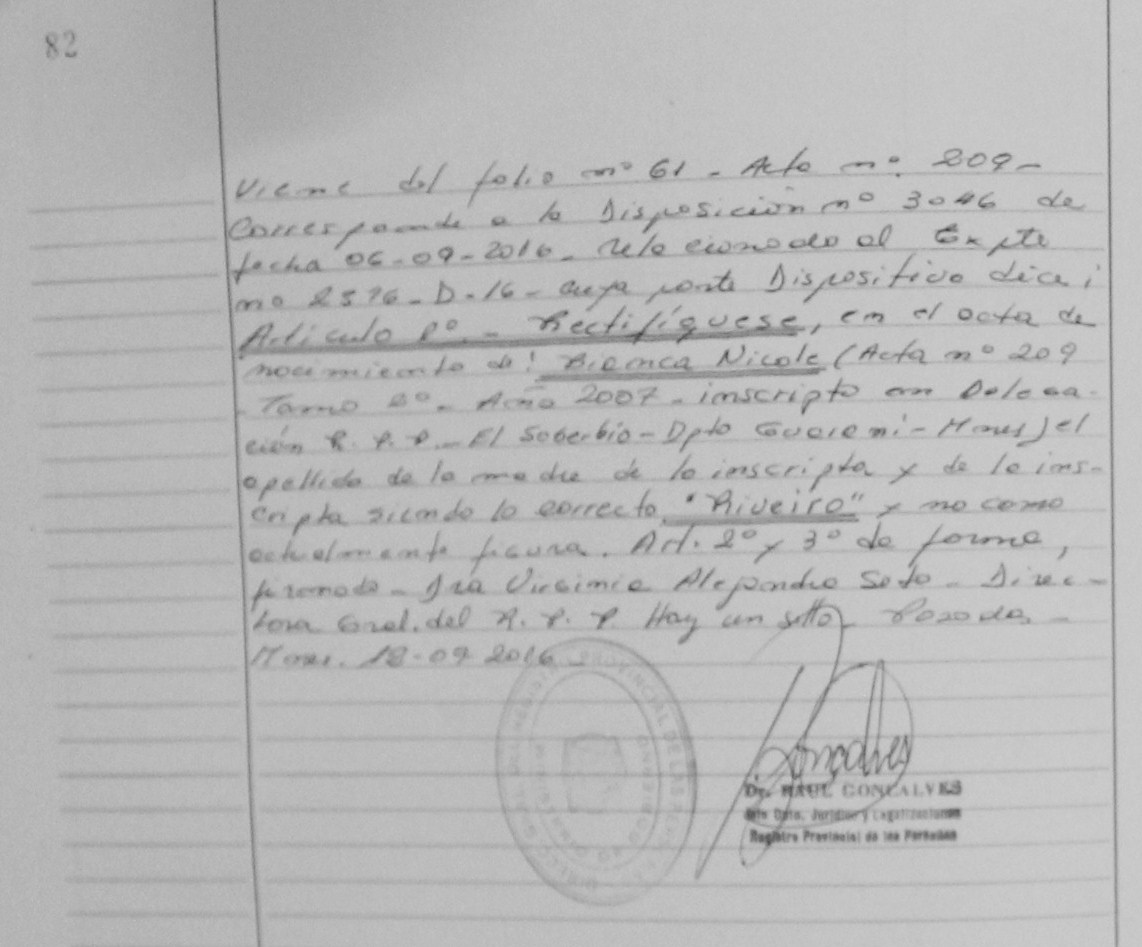 82
Viene del folio nº 61 - Acta nº. 209 -
Corresponde a la Disposición nº 3046 de
fecha 06-09-2016 - relacionado al Expte
nº 2576-D-16 - cuya parte Dispositiva dice;
Artículo 1º. - Rectifíquese, en el acta de
nacimiento de: Bianca Nicole (Acta nº 209
- Tomo - Año 2007 - inscripta en Delega-
ción R. P. P. - El Soberbio - Dpto Guaraní - Mnes) el
apellido de la madre de la inscripta y de la ins-
cripta siendo lo correcto "Riveiro" y no como
actualmente figura. Art. 2º y 3º de forma,
firmado - Dra Virginia Alejandra Soto - Direc-
tora Gral. del R. P. P. Hay un sello - Posadas -
Mnes. 18-09 2016
REGISTRO PROVINCIAL DE LAS PERSONAS
Gonçalves
Dr. RAUL GONCALVES
Dpto. Jurídico y Legalizaciones
Registro Provincial de las Personas